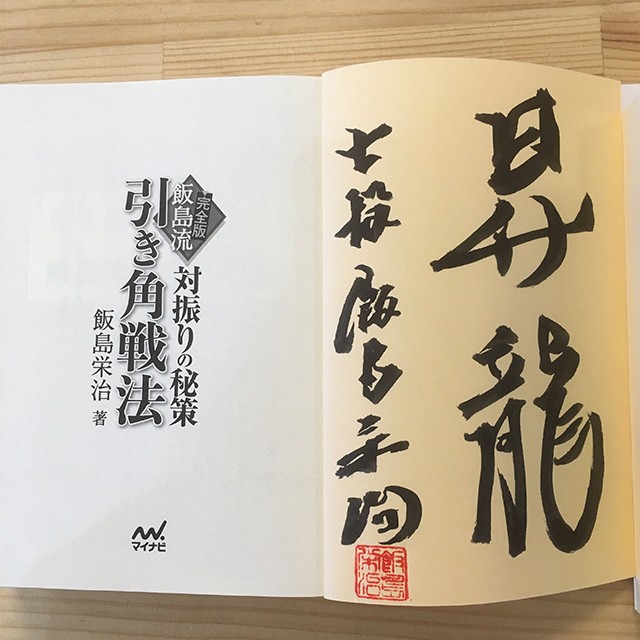 昇龍
七段 飯島栄治
飯島栄治
対振りの秘策
完全版
飯島流
引き角戦法
飯島栄治 著
マイナビ